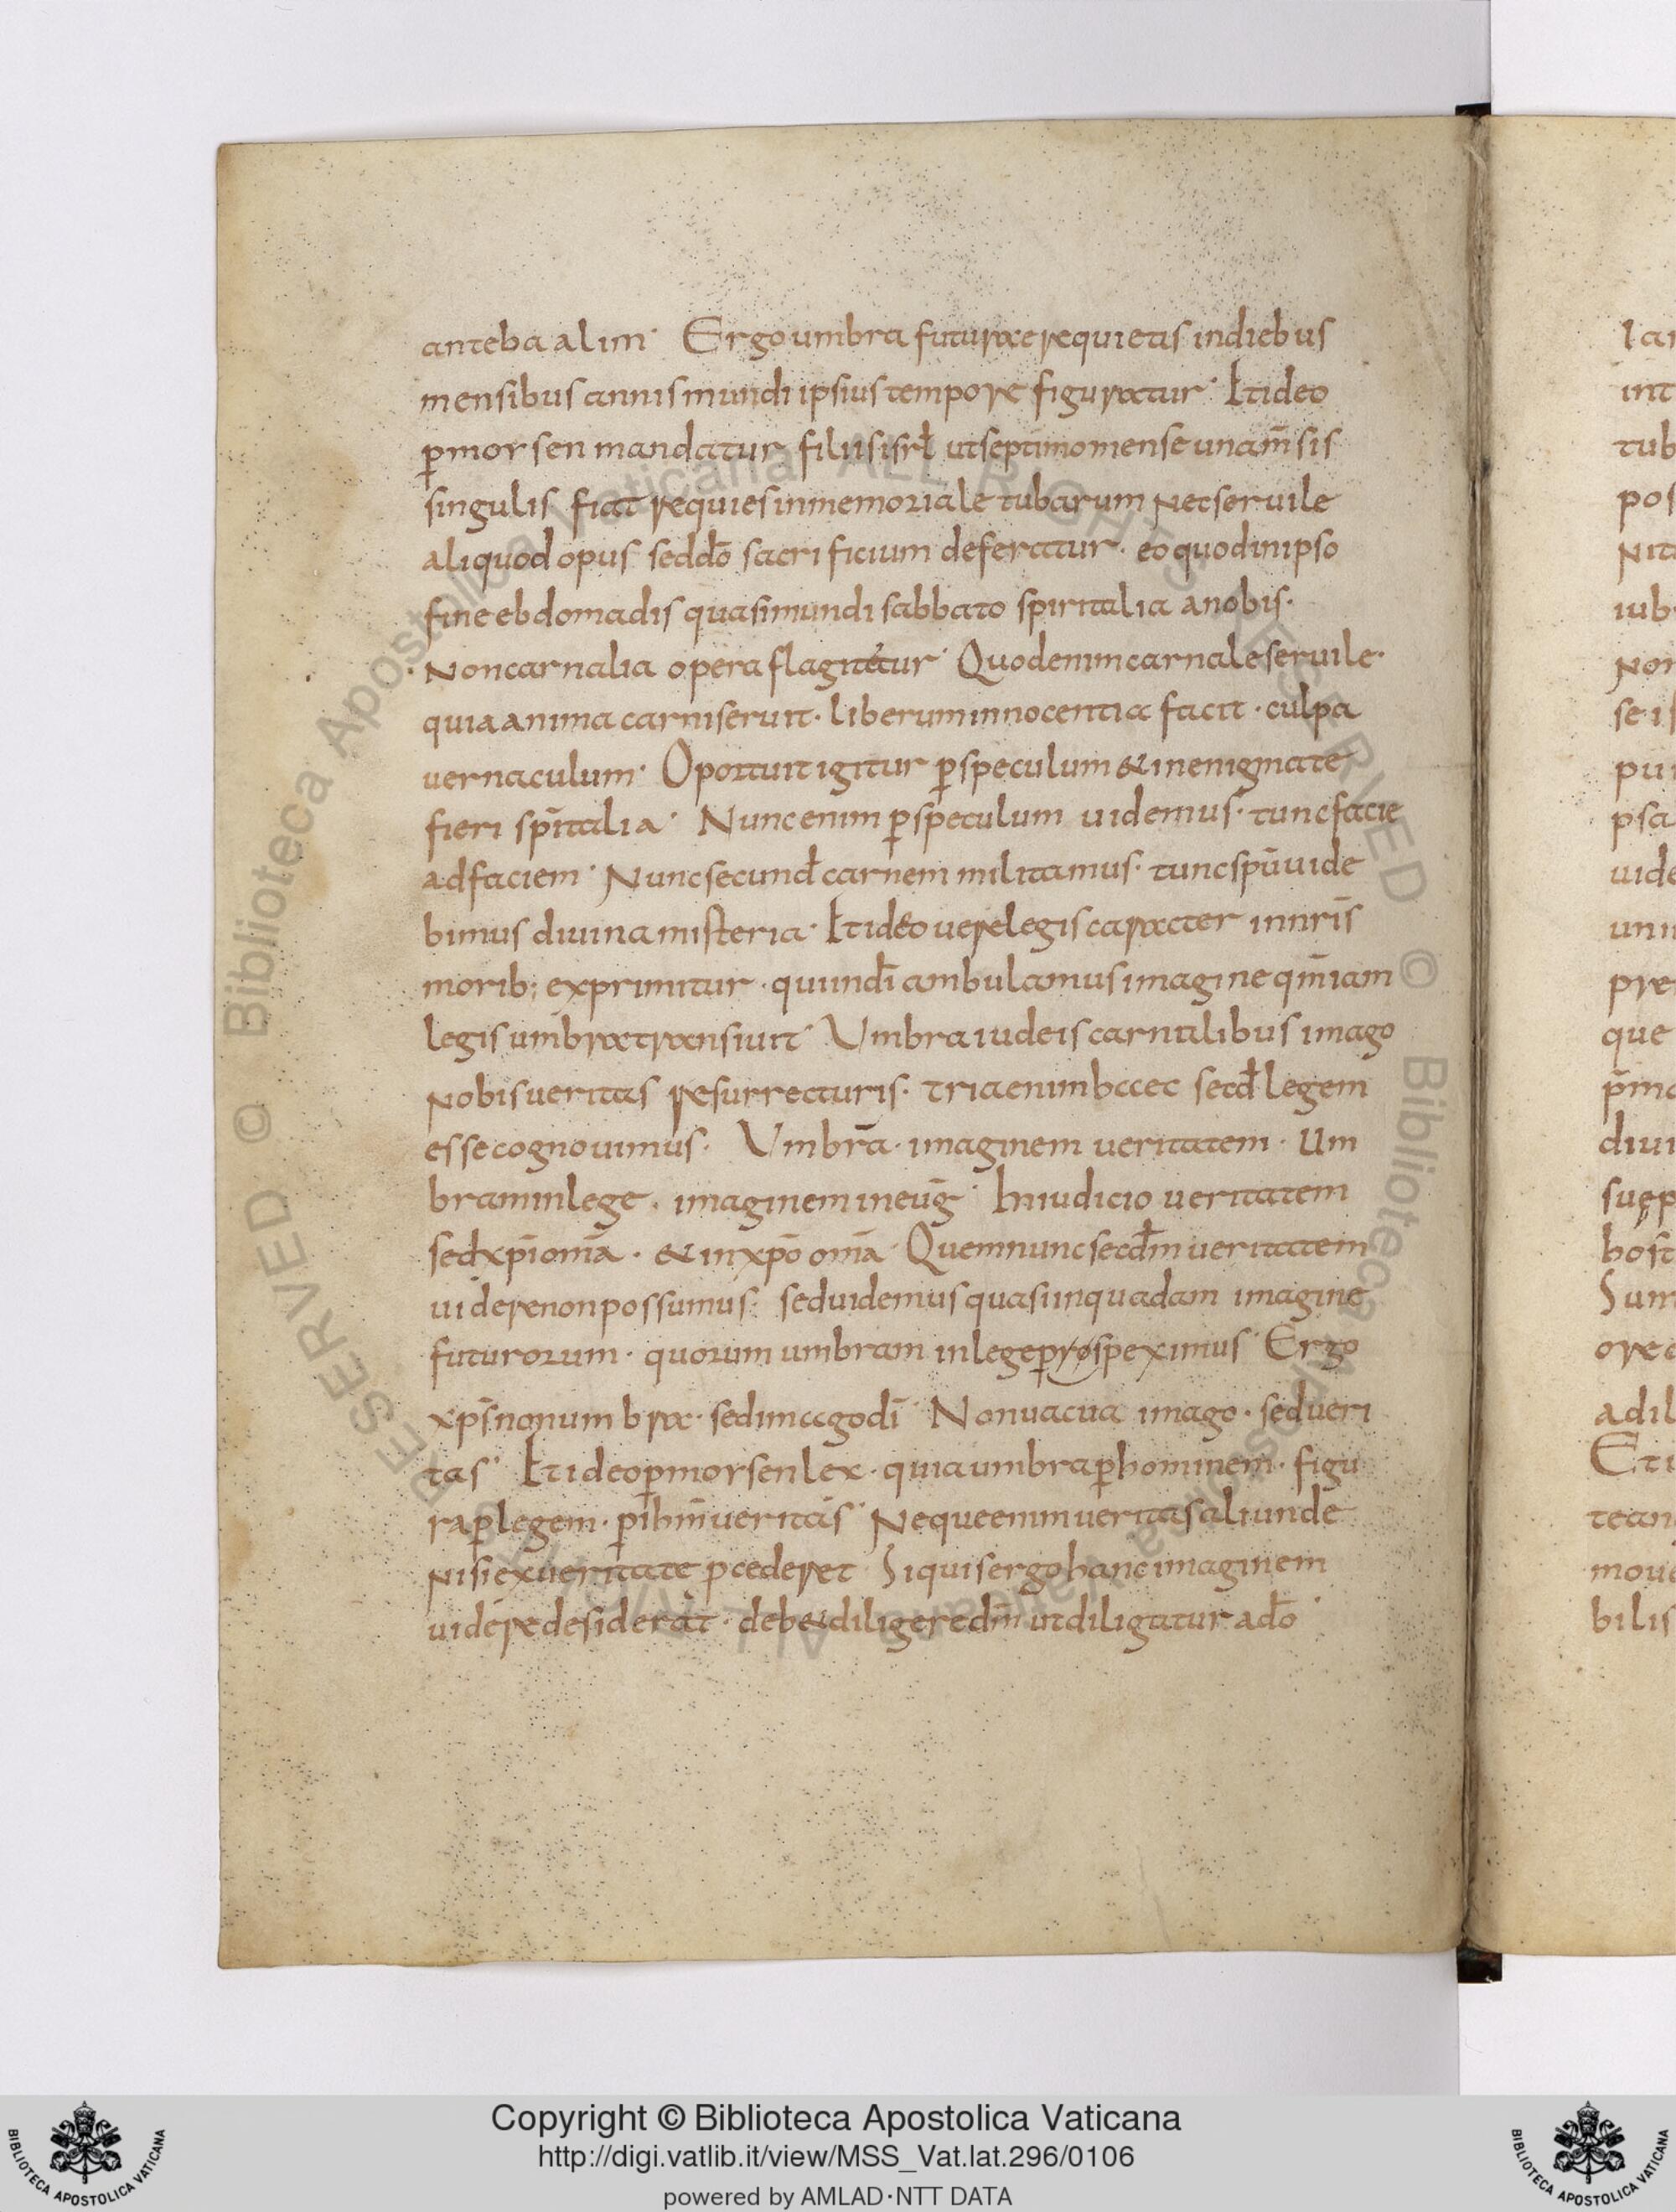 ante baalim· Ergo umbra futurae requietis in diebus
mensibus annis mundi ipsius tempore figuratur· Et ideo
p̱ morsen mandatur filiis isrł ut septimo mense una m̄sis
singulis fiat requies in memoriale tubarum Nec seruile
aliquod opus sed dō sacrificium deferatur· eo quod in ipso
fine ebdomadis quasi mundi sabbato spiritalia a nobis·
Non carnalia opera flagitétur· Quod enim carnale seruile·
quia anima carni seruit· liberum innocentia facit· culpa
uernaculum· Oportuit igitur p̱ speculum & in enigmate
fieri sp̄italia· Nunc enim p̱ speculum uidemus· tunc facie
ad faciem· Nunc secund̄ carnem militamus· tunc spū uide
bimus diuina misteria· Et ideo uere legis caracter in nr̄is
morib; exprimitur· qui in dī ambulamus imagine qm̄iam
legis umbra transiuit· Umbra iudeis carnalibus imago
Nobis ueritas resurrecturis· tria enim haec secd̄ legem
esse cognouimus· Umbrā· imaginem ueritatem· Um
bram in lege· imaginem in eug̅· In iudicio ueritatem
sed xp̄i om̄a· & in xp̄o om̄a· Quem nunc secd̄m ueritatem
uidere non possumus· sed uidemus quasi in quadam imagine
futurorum· quorum umbram in lege prospeximus· Ergo
xp̄s non umbra· sed imago dī· Non uacua imago· sed ueri
tas· Et ideo p̱ morsen lex· quia umbra p̱ hominem· figu
ra p̱ legem· p̱ ih̄m ueritas· Neque enim ueritas aliunde
Nisi ex ueritate pcederet Si quis ergo hanc imaginem
uidere desiderat· deb& diligere dm̄ ut diligatur a dō·
Copyright © Biblioteca Apostolica Vaticana
http://digi.vatlib.it/view/MSS_Vat.lat.296/0106
powered by AMLAD·NTT DATA
BIBLIOTECA APOSTOLICA VATICANA
BIBLIOTECA APOSTOLICA VATICANA